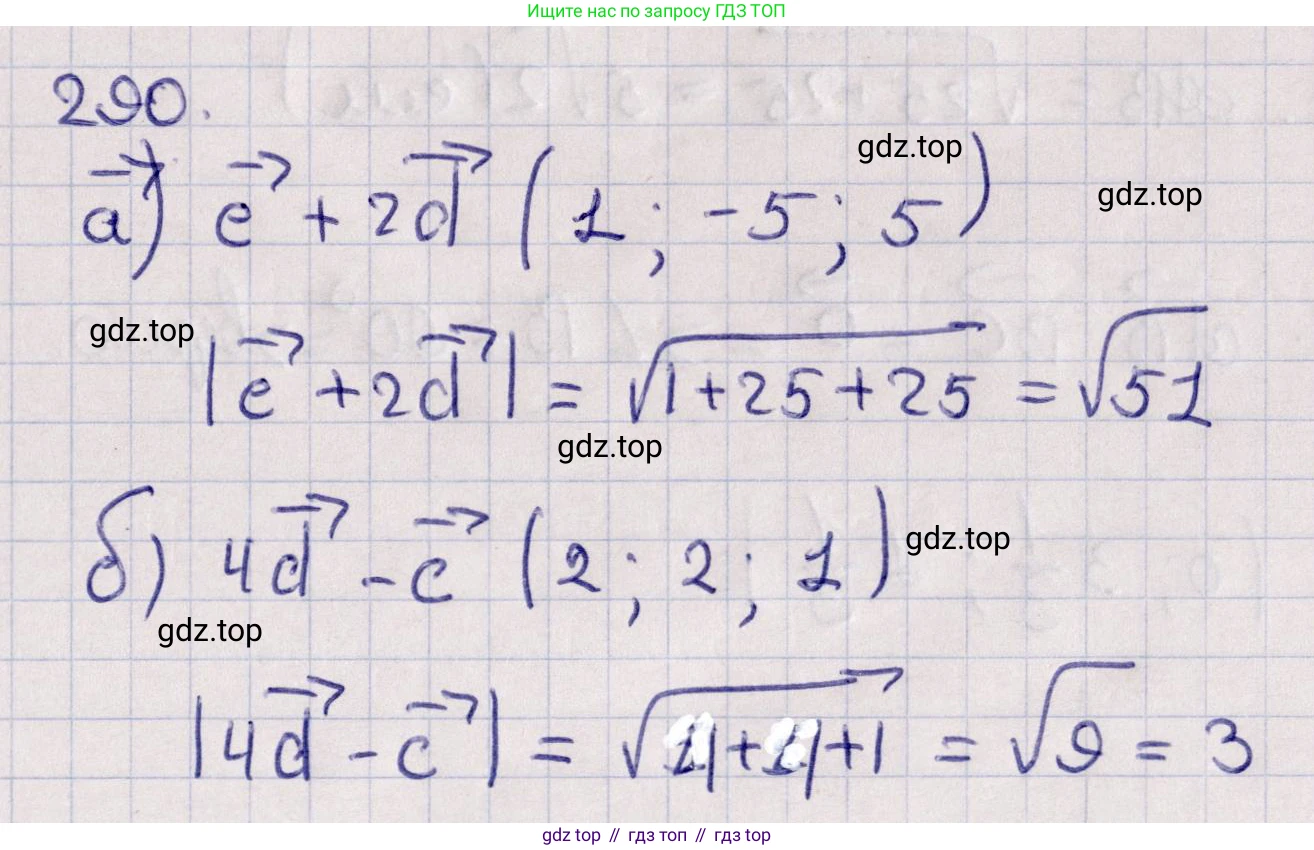 Ищите нас по запросу ГДЗ ТОП
290.
a⃗) e⃗ + 2d⃗ (1; -5; 5)
gdz.top
gdz.top
gdz.top
|e⃗ + 2d⃗| = √1+25+25 = √51
gdz.top
б) 4d⃗ - c⃗ (2; 2; 1)
gdz.top
gdz.top
|4d⃗ - c⃗| = √4+4+1 = √9 = 3
gdz top // гдз топ // gdz top